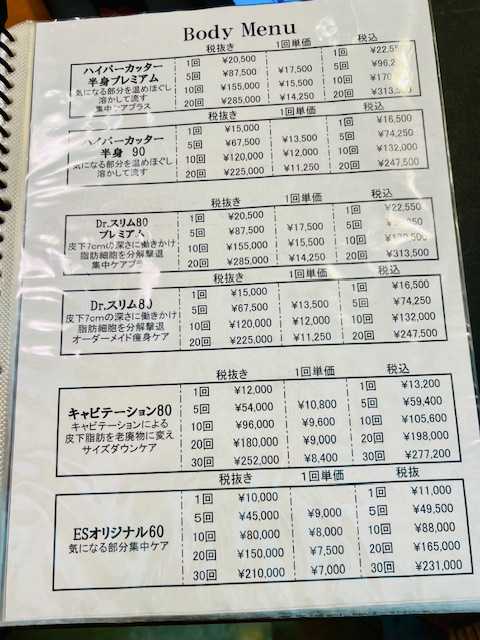 Body Menu
税抜き 1回単価 税込
ハイパーカッター
半身プレミアム
気になる部分を温めほぐし
溶かして流す
集中ケアプラス
1回 ¥20,500 1回 ¥22,550
5回 ¥87,500 ¥17,500 5回 ¥96,2
10回 ¥155,000 ¥15,500 10回
20回 ¥285,000 ¥14,250 20回 ¥313,5
税抜き 1回単価 税込
ハイパーカッター
半身 90
気になる部分を温めほぐし
溶かして流す
1回 ¥15,000 1回 ¥16,500
5回 ¥67,500 ¥13,500 5回 ¥74,250
10回 ¥120,000 ¥12,000 10回 ¥132,000
20回 ¥225,000 ¥11,250 20回 ¥247,500
税抜き 1回単価 税込
Dr.スリム80
プレミアム
皮下7cmの深さに働きかけ
脂肪細胞を分解撃退
集中ケアプラ
1回 ¥20,500 1回 ¥22,550
5回 ¥87,500 ¥17,500 5回
10回 ¥155,000 ¥15,500 10回
20回 ¥285,000 ¥14,250 20回 ¥313,500
税抜き 1回単価 税込
Dr.スリム80
皮下7cmの深さに働きかけ
脂肪細胞を分解撃退
オーダーメイド痩身ケア
1回 ¥15,000 1回 ¥16,500
5回 ¥67,500 ¥13,500 5回 ¥74,250
10回 ¥120,000 ¥12,000 10回 ¥132,000
20回 ¥225,000 ¥11,250 20回 ¥247,500
税抜き 1回単価 税込
キャビテーション80
キャビテーションによる
皮下脂肪を老廃物に変え
サイズダウンケア
1回 ¥12,000 1回 ¥13,200
5回 ¥54,000 ¥10,800 5回 ¥59,400
10回 ¥96,000 ¥9,600 10回 ¥105,600
20回 ¥180,000 ¥9,000 20回 ¥198,000
30回 ¥252,000 ¥8,400 30回 ¥277,200
税抜き 1回単価 税抜
ESオリジナル60
気になる部分集中ケア
1回 ¥10,000 1回 ¥11,000
5回 ¥45,000 ¥9,000 5回 ¥49,500
10回 ¥80,000 ¥8,000 10回 ¥88,000
20回 ¥150,000 ¥7,500 20回 ¥165,000
30回 ¥210,000 ¥7,000 30回 ¥231,000